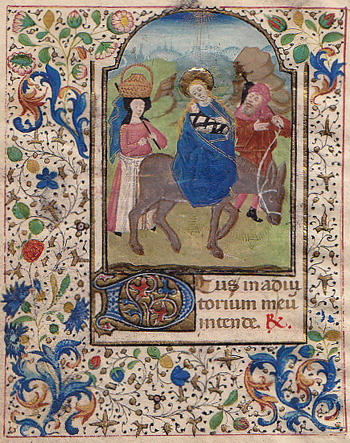 DEus in adiu
torium meu
intende. ℟.